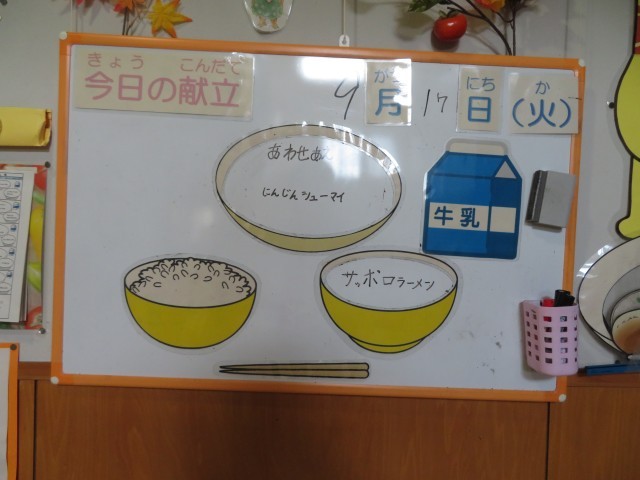 きょう こんだて
今日の献立
がつ にち か
9月17日(火)
あわせ
にんじんシューマイ
牛乳
サッポロラーメン